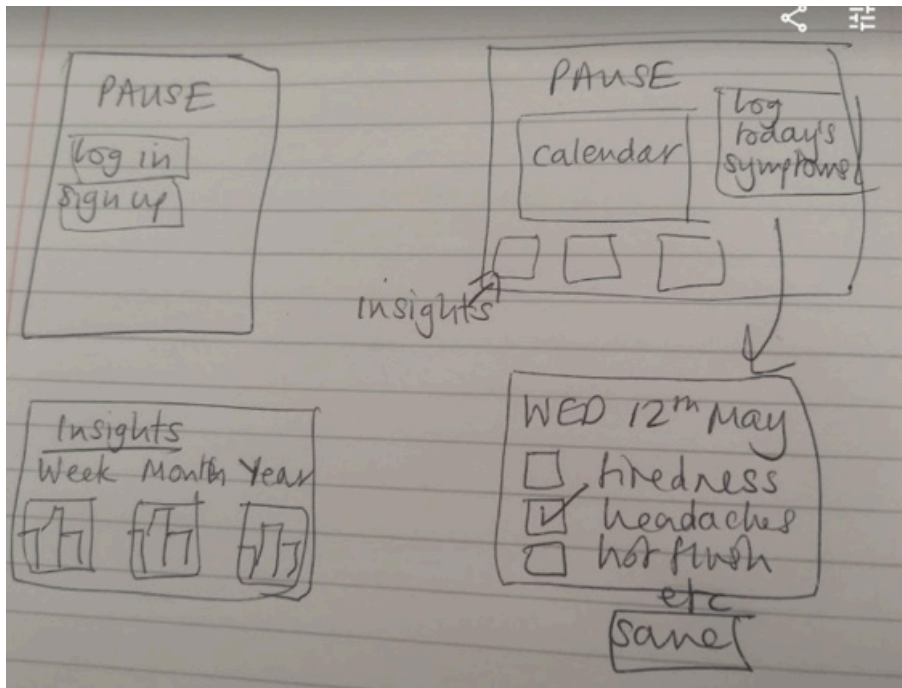 PAUSE
log in
sign up
PAUSE
calendar
log
today's
symptoms
insights
Insights
Week Month Year
WED 12th May
tiredness
headaches
hot flush
etc
save